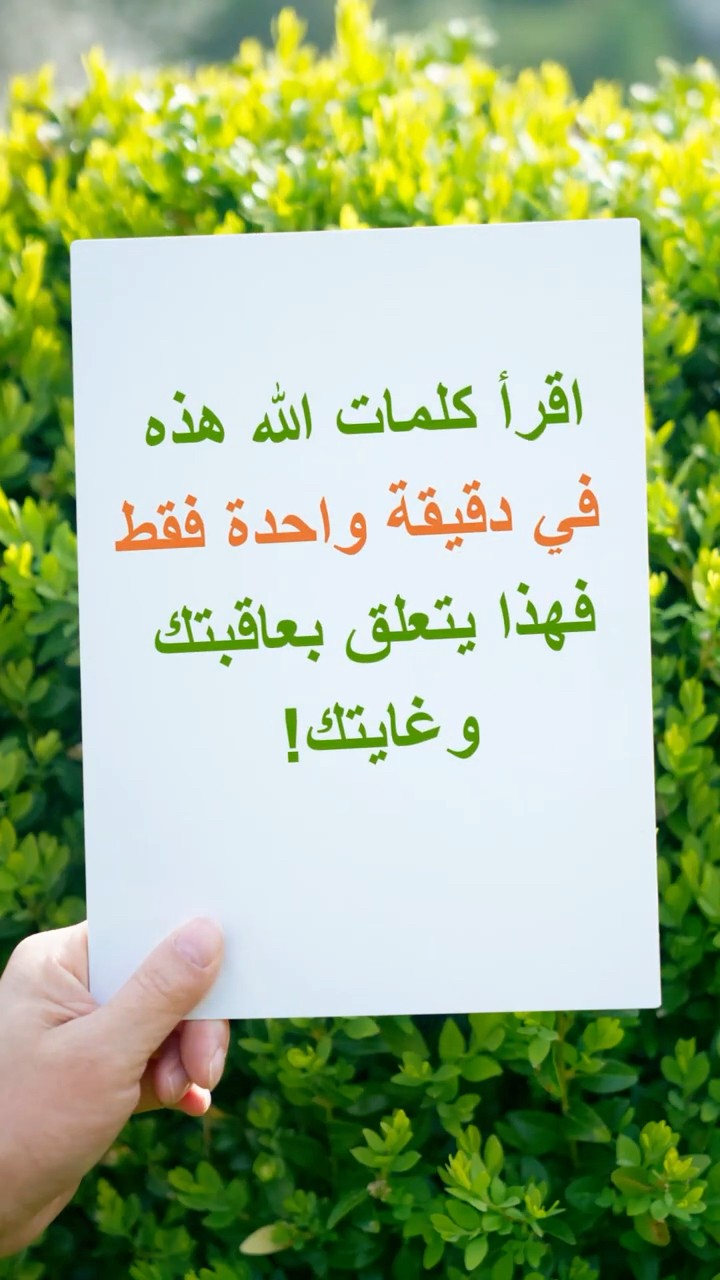 اقرأ كلمات الله هذه
في دقيقة واحدة فقط
فهذا يتعلق بعاقبتك
وغايتك!